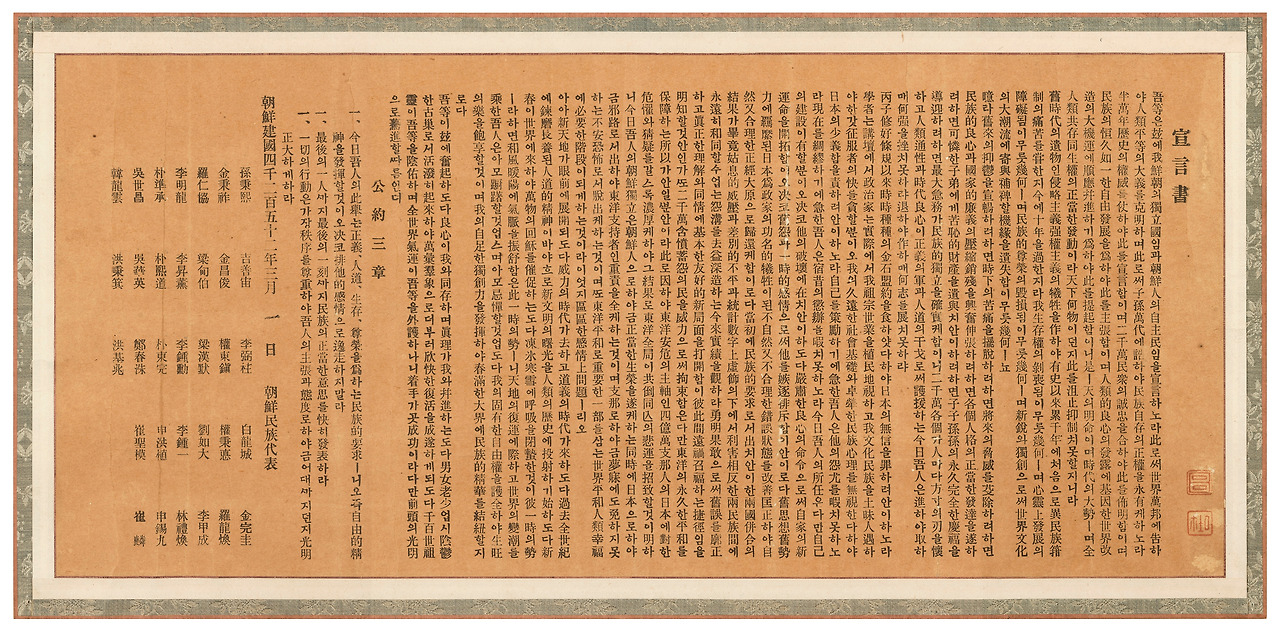 宣言書
吾等은玆에我鮮朝의獨立國임과朝鮮人의自主民임을宣言하노라此로써世界萬邦에告하
야人類平等의大義를克明하며此로써子孫萬代에誥하야民族自存의正權을永有케하노라
半萬年歷史의權威를仗하야此를宣言함이며二千萬民衆의誠忠을合하야此를佈明함이며
民族의恒久如一한自由發展을爲하야此를主張함이며人類的良心의發露에基因한世界改
造의大機運에順應幷進하기爲하야此를提起함이니是ㅣ天의明命이며時代의大勢ㅣ며全
人類共存同生權의正當한發動이라天下何物이던지此를沮止抑制치못할지니라
舊時代의遺物인侵略主義强權主義의犧牲을作하야有史以來累千年에처음으로異民族箝
制의痛苦를嘗한지今에十年을過한지라我生存權의剝喪됨이무릇幾何ㅣ며心靈上發展의
障礙됨이무릇幾何ㅣ며民族的尊榮의毁損됨이무릇幾何ㅣ며新銳와獨創으로써世界文化
의大潮流에寄與補裨할機緣을遺失함이무릇幾何ㅣ뇨
噫라舊來의抑鬱을宣暢하려하면時下의苦痛을擺脫하려하면將來의脅威를芟除하려하면
民族的良心과國家的廉義의壓縮銷殘을興奮伸張하려하면各個人格의正當한發達을遂하
려하면可憐한子弟에게苦恥的財產을遺與치안이하려하면子子孫孫의永久完全한慶福을
導迎하려하면最大急務가民族的獨立을確實케함이니二千萬各個가人마다方寸의刃을懷
하고人類通性과時代良心이正義의軍과人道의干戈로써護援하는今日吾人은進하야取하
매何强을挫치못하랴退하야作하매何志를展치못하랴
丙子修好條規以來時時種種의金石盟約을食하얏다하야日本의無信을罪하려안이하노라
學者는講壇에서政治家는實際에서我祖宗世業을植民地視하고我文化民族을土昧人遇하
야한갓征服者의快를貪할뿐이오我의久遠한社會基礎와卓犖한民族心理를無視한다하야
日本의少義함을責하려안이하노라自己를策勵하기에急한吾人은他의怨尤를暇치못하노
라現在를綢繆하기에急한吾人은宿昔의懲辦을暇치못하노라今日吾人의所任은다만自己
의建設이有할뿐이오決코他의破壞에在치안이하도다嚴肅한良心의命令으로써自家의新
運命을開拓함이오決코舊怨과一時的感情으로써他를嫉逐排斥함이안이로다舊思想舊勢
力에羈縻된日本爲政家의功名的犧牲이된不自然又不合理한錯誤狀態를改善匡正하야自
然又合理한正經大原으로歸還케함이로다當初에民族的要求로서出치안이한兩國倂合의
結果가畢竟姑息的威壓과差別的不平과統計數字上虛飾의下에서利害相反한兩民族間에
永遠히和同할수업는怨溝를去益深造하는今來實績을觀하라勇明果敢으로써舊誤를廓正
하고眞正한理解와同情에基本한友好的新局面을打開함이彼此間遠禍召福하는捷徑임을
明知할것안인가또二千萬含憤蓄怨의民을威力으로써拘束함은다만東洋의永久한平和를
保障하는所以가안일뿐안이라此로因하야東洋安危의主軸인四億萬支那人의日本에對한
危懼와猜疑를갈스록濃厚케하야그結果로東洋全局이共倒同亡의悲運을招致할것이明하
니今日吾人의朝鮮獨立은朝鮮人으로하야금正當한生榮을遂케하는同時에日本으로하야
금邪路로서出하야東洋支持者인重責을全케하는것이며支那로하야금夢寐에도免하지못
하는不安恐怖로서脫出케하는것이며또東洋平和로重要한一部를삼는世界平和人類幸福
에必要한階段이되게하는것이라이엇지區區한感情上問題ㅣ리오
아아新天地가眼前에展開되도다威力의時代가去하고道義의時代가來하도다過去全世紀
에鍊磨長養된人道的精神이바야흐로新文明의曙光을人類의歷史에投射하기始하도다新
春이世界에來하야萬物의回穌를催促하는도다凍氷寒雪에呼吸을閉蟄한것이彼一時의勢
ㅣ라하면和風暖陽에氣脈을振舒함은此一時의勢ㅣ니天地의復運에際하고世界의變潮를
乘한吾人은아모躕躇할것업스며아모忌憚할것업도다我의固有한自由權을護全하야生旺
의樂을飽享할것이며我의自足한獨創力을發揮하야春滿한大界에民族的精華를結紐할지
로다
吾等이玆에奮起하도다良心이我와同存하며眞理가我와幷進하는도다男女老少업시陰鬱
한古巢로서活潑히起來하야萬彙羣象으로더부러欣快한復活을成遂하게되도다千百世祖
靈이吾等을陰佑하며全世界氣運이吾等을外護하나니着手가곳成功이라다만前頭의光明
으로驀進할따름인뎌
公約三章
一、今日吾人의此擧는正義、人道、生存、尊榮을爲하는民族的要求ㅣ니오즉自由的精
神을發揮할것이오決코排他的感情으로逸走하지말라
一、最後의一人까지最後의一刻까지民族의正當한意思를快히發表하라
一、一切의行動은가장秩序를尊重하야吾人의主張과態度로하야금어대까지던지光明
正大하게하라
朝鮮建國四千二百五十二年三月一日 朝鮮民族代表
孫秉熙 吉善宙 李弼柱 白龍城 金完圭
金秉祚 金昌俊 權東鎭 權秉悳 羅龍煥
羅仁協 梁甸伯 梁漢默 劉如大 李甲成
李明龍 李昇薰 李鍾勳 李鍾一 林禮煥
朴準承 朴熙道 朴東完 申洪植 申錫九
吳世昌 吳華英 鄭春洙 崔聖模 崔麟
韓龍雲 洪秉箕 洪基兆